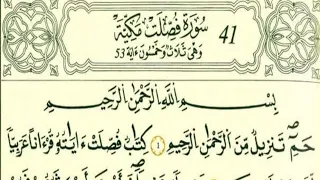 سُورَةُ فُصِّلَتْ مَكِّيَّة 41
وَهْيَ ثَلَاثٌ وَخَمْسُونَ ءَايَة 53
بِسْمِ اللَّهِ الرَّحْمَٰنِ الرَّحِيمِ
حمٓ تَنزِيلٌ مِّنَ الرَّحْمَٰنِ الرَّحِيمِ ١ كِتَٰبٌ فُصِّلَتْ ءَايَٰتُهُۥ قُرْءَاناً عَرَبِيّاً